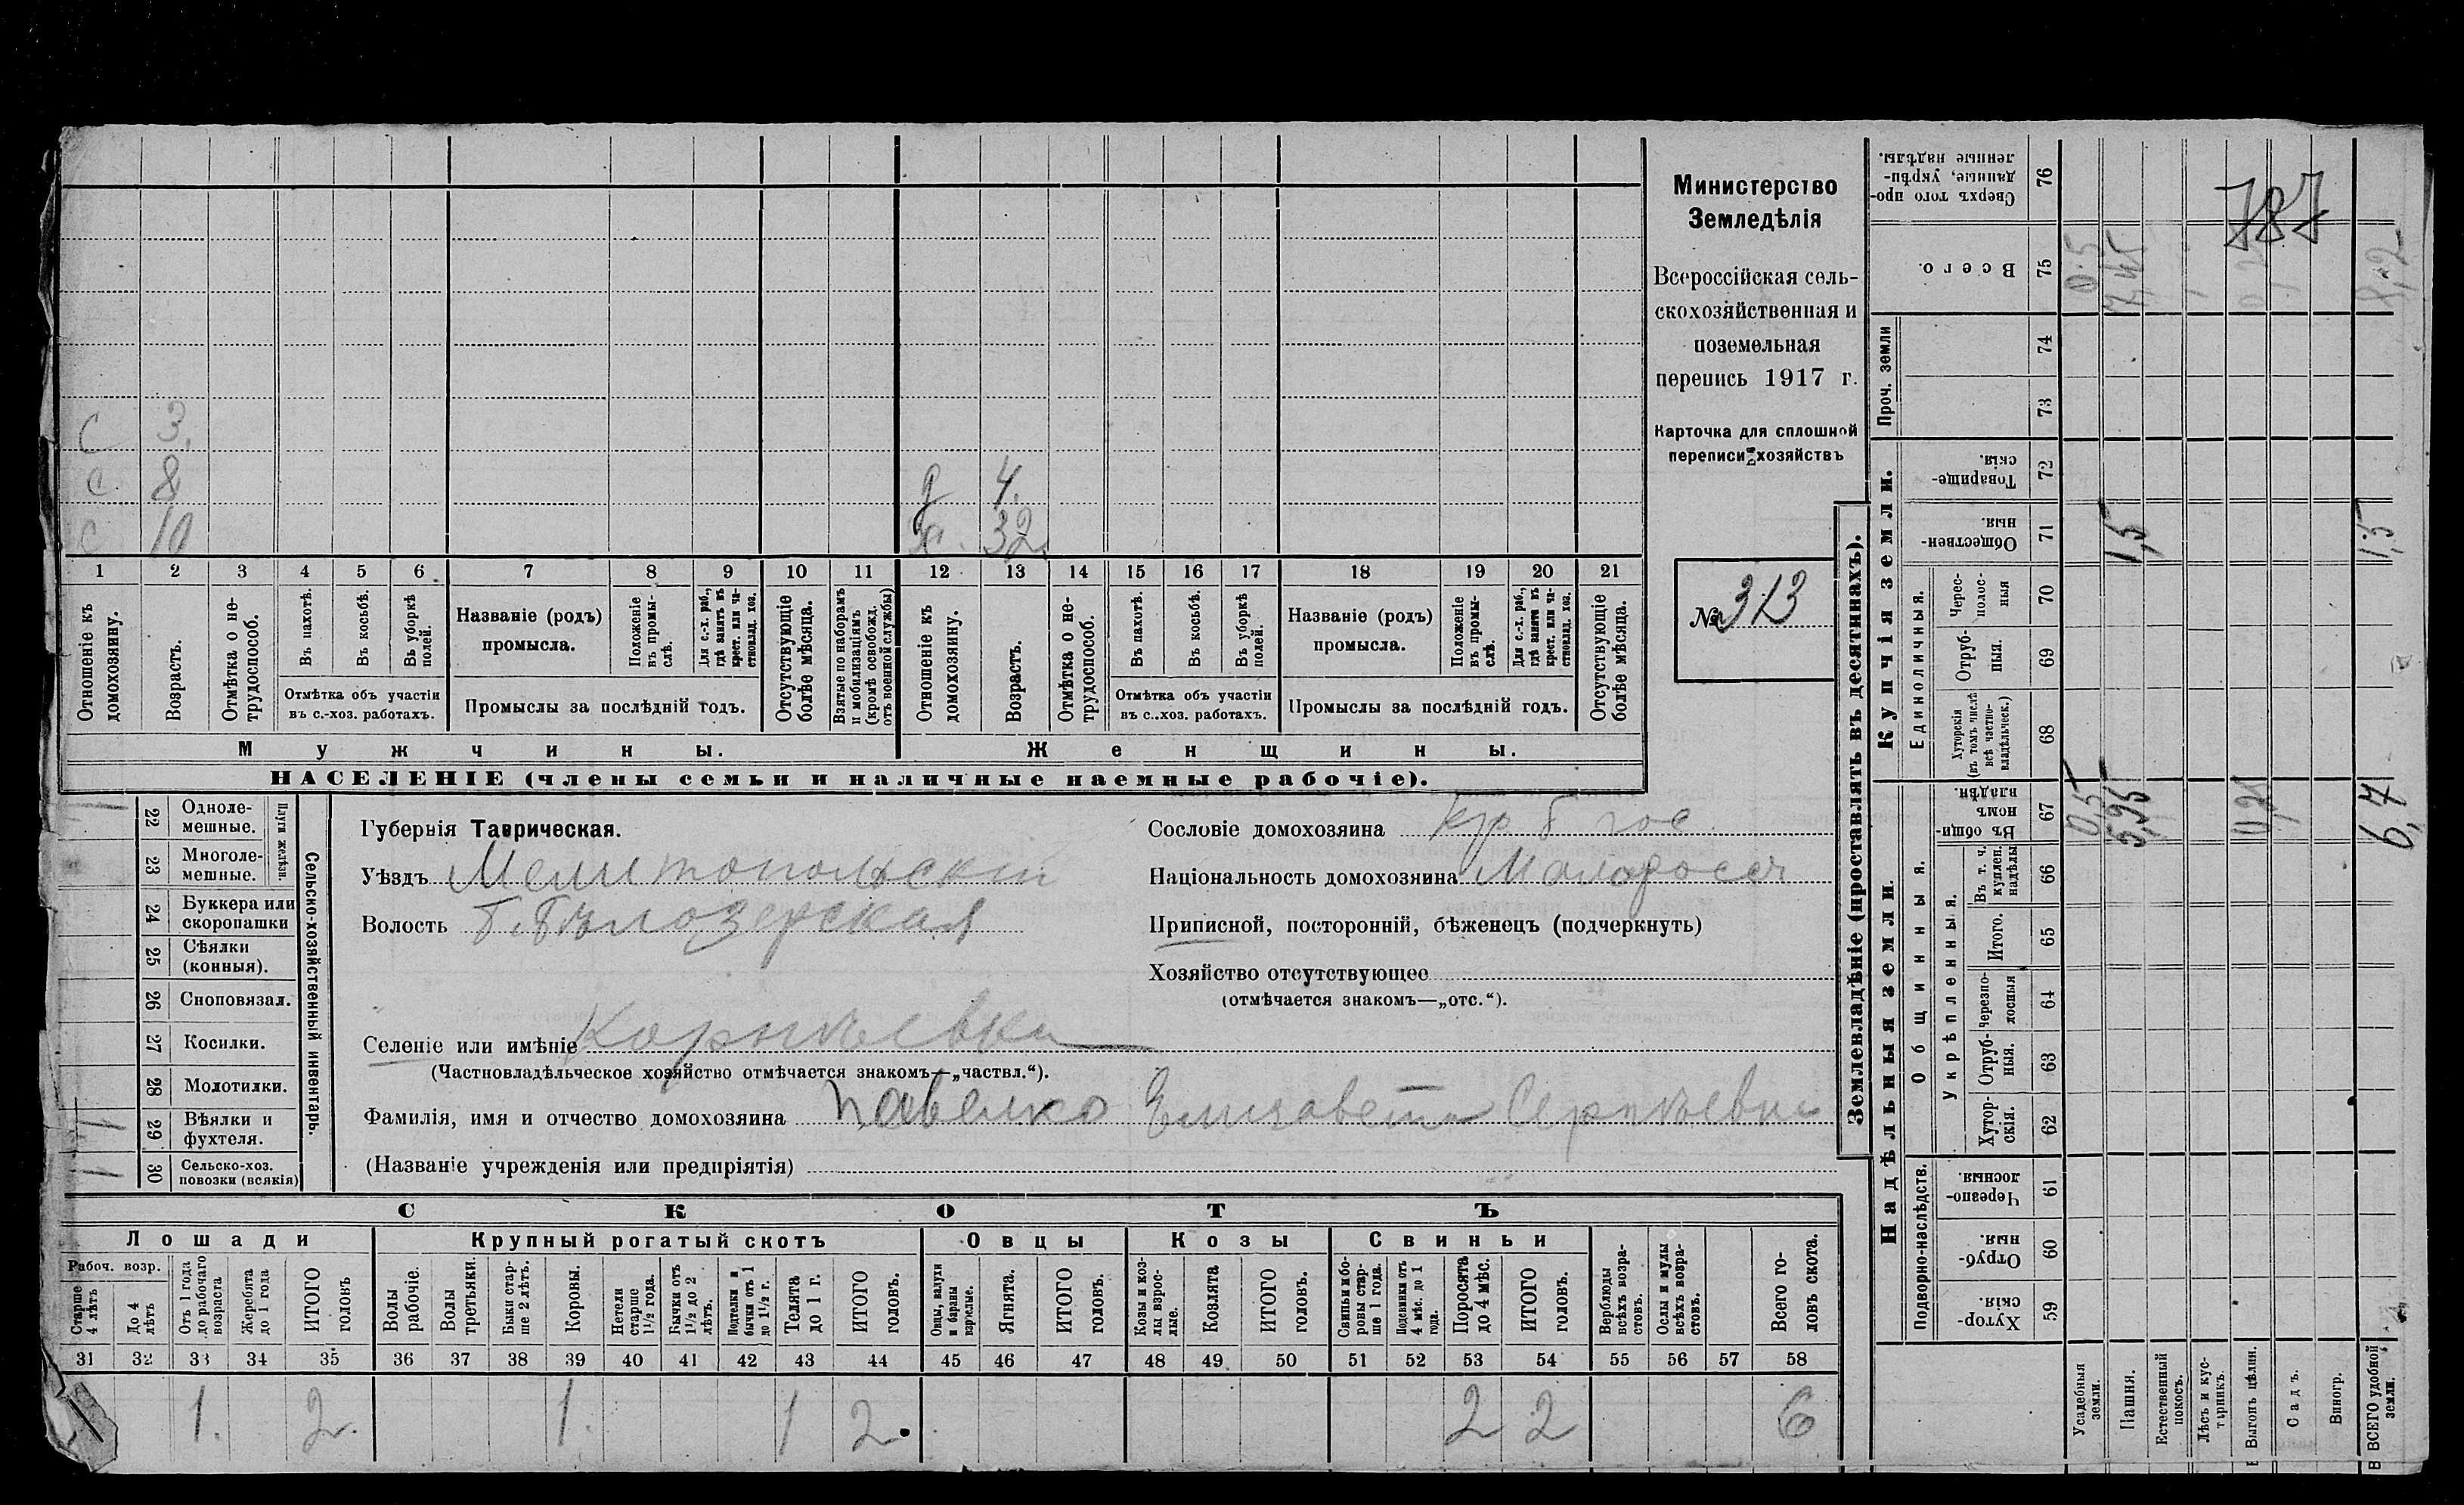 Министерство
Земледѣлія
Всероссійская сель-
скохозяйственная и
поземельная
перепись 1917 г.
Карточка для сплошной
переписи хозяйствъ
№ 313
787
с 3.
с. 8
с 10
д 4.
ж. 32.
1 2 3 4 5 6 7 8 9 10 11 12 13 14 15 16 17 18 19 20 21
Отношеніе къ домохозяину.
Возрастъ.
Отмѣтка о не-трудоспособ.
Въ пахотѣ.
Въ косьбѣ.
Въ уборкѣ полей.
Отмѣтка объ участіи
въ с.-хоз. работахъ.
Названіе (родъ)
промысла.
Положеніе въ промы-слѣ.
Для с.-х. раб., гдѣ занятъ въ крест. или ча-стновлад. хоз.
Промыслы за послѣдній годъ.
Отсутствующіе болѣе мѣсяца.
Взятые по наборамъ и мобилизаціямъ (кромѣ освобожд. отъ военной службы)
Отношеніе къ домохозяину.
Возрастъ.
Отмѣтка о не-трудоспособ.
Въ пахотѣ.
Въ косьбѣ.
Въ уборкѣ полей.
Отмѣтка объ участіи
въ с.-хоз. работахъ.
Названіе (родъ)
промысла.
Положеніе въ промы-слѣ.
Для с.-х. раб., гдѣ занята въ крест. или ча-стновлад. хоз.
Промыслы за послѣдній годъ.
Отсутствующіе болѣе мѣсяца.
Мужчины.
Женщины.
НАСЕЛЕНІЕ (члены семьи и наличные наемные рабочіе).
Сельско-хозяйственный инвентарь.
Плуги желѣзн.
22 Одноле-мешные. 1
23 Многоле-мешные.
24 Буккера или скоропашки
25 Сѣялки (конныя).
26 Сноповязал.
27 Косилки.
28 Молотилки.
29 Вѣялки и фухтеля. 1
30 Сельско-хоз. повозки (всякія) 1
Губернія Таврическая.
Уѣздъ Мелитопольскій
Волость Б. Бѣлозерская
Селеніе или имѣніе Корнѣевка
(Частновладѣльческое хозяйство отмѣчается знакомъ—„частвл.“).
Фамилія, имя и отчество домохозяина Павелко Елизавета Сергѣевна
(Названіе учрежденія или предпріятія)
Сословіе домохозяина кр б гос.
Національность домохозяина Малоросс
Приписной, посторонній, бѣженецъ (подчеркнуть)
Хозяйство отсутствующее
(отмѣчается знакомъ—„отс.“).
СКОТЪ
Лошади
Крупный рогатый скотъ
Овцы
Козы
Свиньи
Рабоч. возр.
Старше 4 лѣтъ
До 4 лѣтъ
Отъ 1 года до рабочаго возраста
Жеребята до 1 года
ИТОГО головъ
Волы рабочіе.
Волы третьяки.
Быки стар-ше 2 лѣтъ.
Коровы.
Нетели старше 1½ года.
Бычки отъ 1½ до 2 лѣтъ.
Подтелки и бычки отъ 1 до 1½ г.
Телята до 1 г.
ИТОГО головъ.
Овцы, валухи и бараны взрослые.
Ягнята.
ИТОГО головъ.
Козы и коз-лы взрос-лые.
Козлята
ИТОГО головъ.
Свиньи и бо-ровы стар-ше 1 года.
Подсвинки отъ 4 мѣс. до 1 года.
Поросята до 4 мѣс.
ИТОГО головъ.
Верблюды всѣхъ возра-стовъ.
Ослы и мулы всѣхъ возра-стовъ.
Всего го-ловъ скота.
31 32 33 34 35 36 37 38 39 40 41 42 43 44 45 46 47 48 49 50 51 52 53 54 55 56 57 58
1 1. 2. 1. 1 2. 2 2 6
Землевладѣніе (проставлять въ десятинахъ).
Купчія земли.
Надѣльныя земли.
Проч. земли
Единоличныя.
Общинныя.
Укрѣпленныя.
Подворно-наслѣдств.
76 Сверхъ того про-данные, укрѣп-ленные надѣлы.
75 Всего. 0.5 7,45 0,25 8,2
74
73
72 Товарище-скія.
71 Обществен-ныя. 1,5 1,5
70 Черес-полос-ныя
69 Отруб-ныя.
68 Хуторскія (въ томъ числѣ всѣ частно-владѣльческ.)
67 Въ общи-номъ владѣн. 0,5 5,95 0,25 6,7
66 Въ т. ч. куплен. надѣлы
65 Итого.
64 Черезпо-лосныя
63 Отруб-ныя.
62 Хутор-скія.
61 Черезпо-лосныя.
60 Отруб-ныя.
59 Хутор-скія.
Усадебныя земли.
Пашня.
Естественный покосъ.
Лѣсъ и кус-тарникъ.
Выгонъ цѣлин.
Садъ.
Виногр.
ВСЕГО удобной земли.